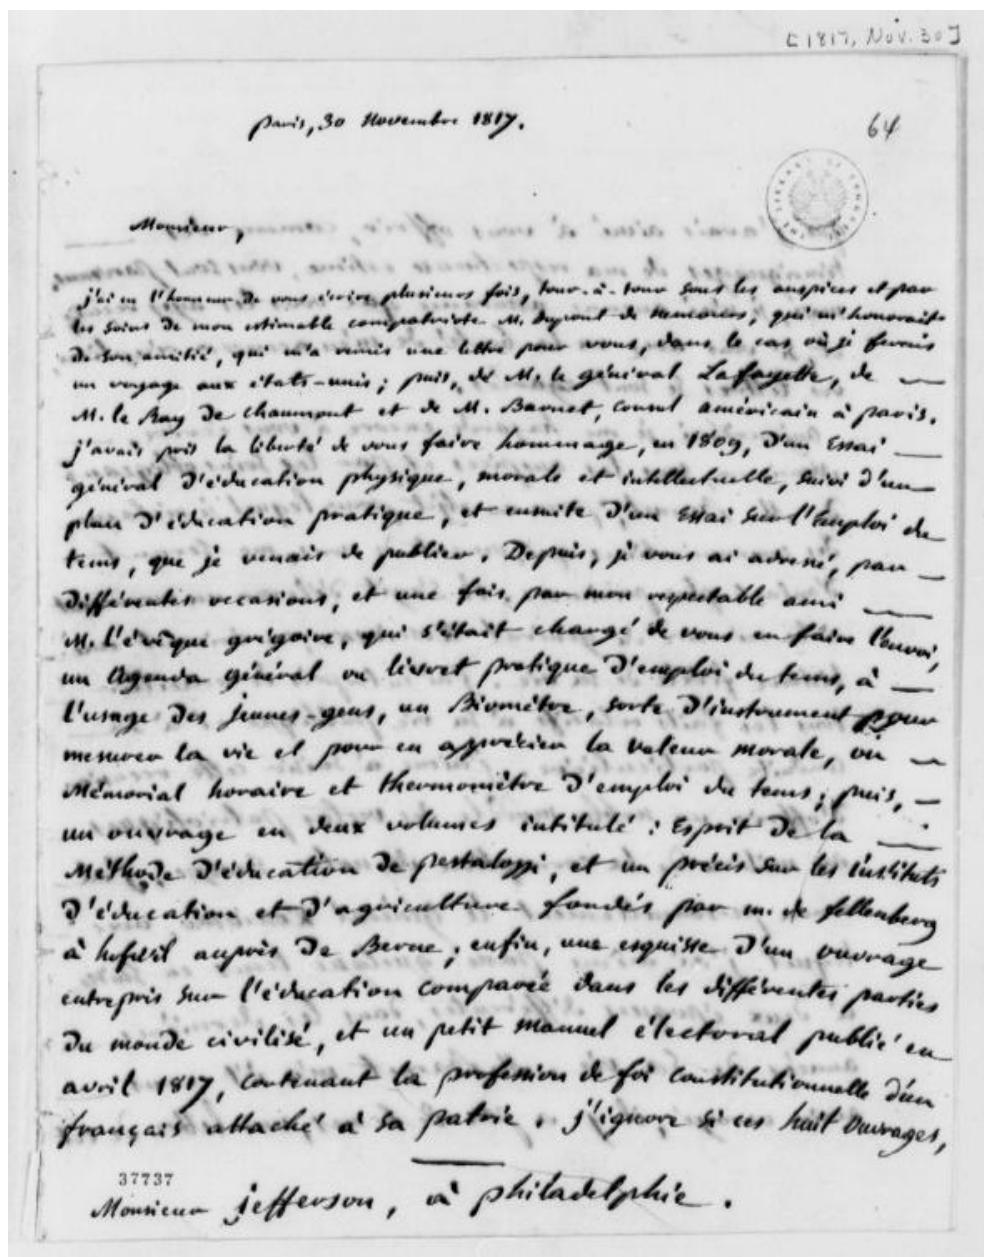 [1817, Nov. 30]
paris, 30 Novembre 1817.
64
Monsieur,
j'ai eu l'honneur de vous écrire plusieurs fois, tour-à-tour sous les auspices et par
les soins de mon estimable compatriote M. Dupont de nemours, qui m'honorait
de son amitié, qui m'a remis une lettre pour vous, dans le cas où je ferais
un voyage aux états-unis; puis, de M. le général Lafayette, de
M. le Ray de chaumont et de M. Barnet, consul américain à paris.
j'avais pris la liberté de vous faire hommage, en 1809, d'un Essai
général d'éducation physique, morale et intellectuelle, suivi d'un
plan d'éducation pratique, et ensuite d'un Essai sur l'Emploi du
tems, que je venais de publier. Depuis, je vous ai adressé, par
différentes occasions, et une fois par mon respectable ami
M. l'évêque grégoire, qui s'était chargé de vous en faire l'envoi,
un Agenda général ou livret pratique d'emploi du tems, à
l'usage des jeunes-gens, un Biomètre, sorte d'instrument pour
mesurer la vie et pour en apprécier la valeur morale, ou
Mémorial horaire et thermomètre d'emploi du tems; puis,
un ouvrage en deux volumes intitulé: Esprit de la
Méthode d'éducation de pestalozzi, et un précis sur les instituts
d'éducation et d'agriculture fondés par m. de fellenberg
à hofwil auprès de Berne; enfin, une esquisse d'un ouvrage
entrepris sur l'éducation comparée dans les différentes parties
du monde civilisé, et un petit manuel électoral publié en
avril 1817, contenant la profession de foi constitutionnelle d'un
français attaché à sa patrie. j'ignore si ces huit ouvrages,
37737
Monsieur jefferson, à philadelphie.